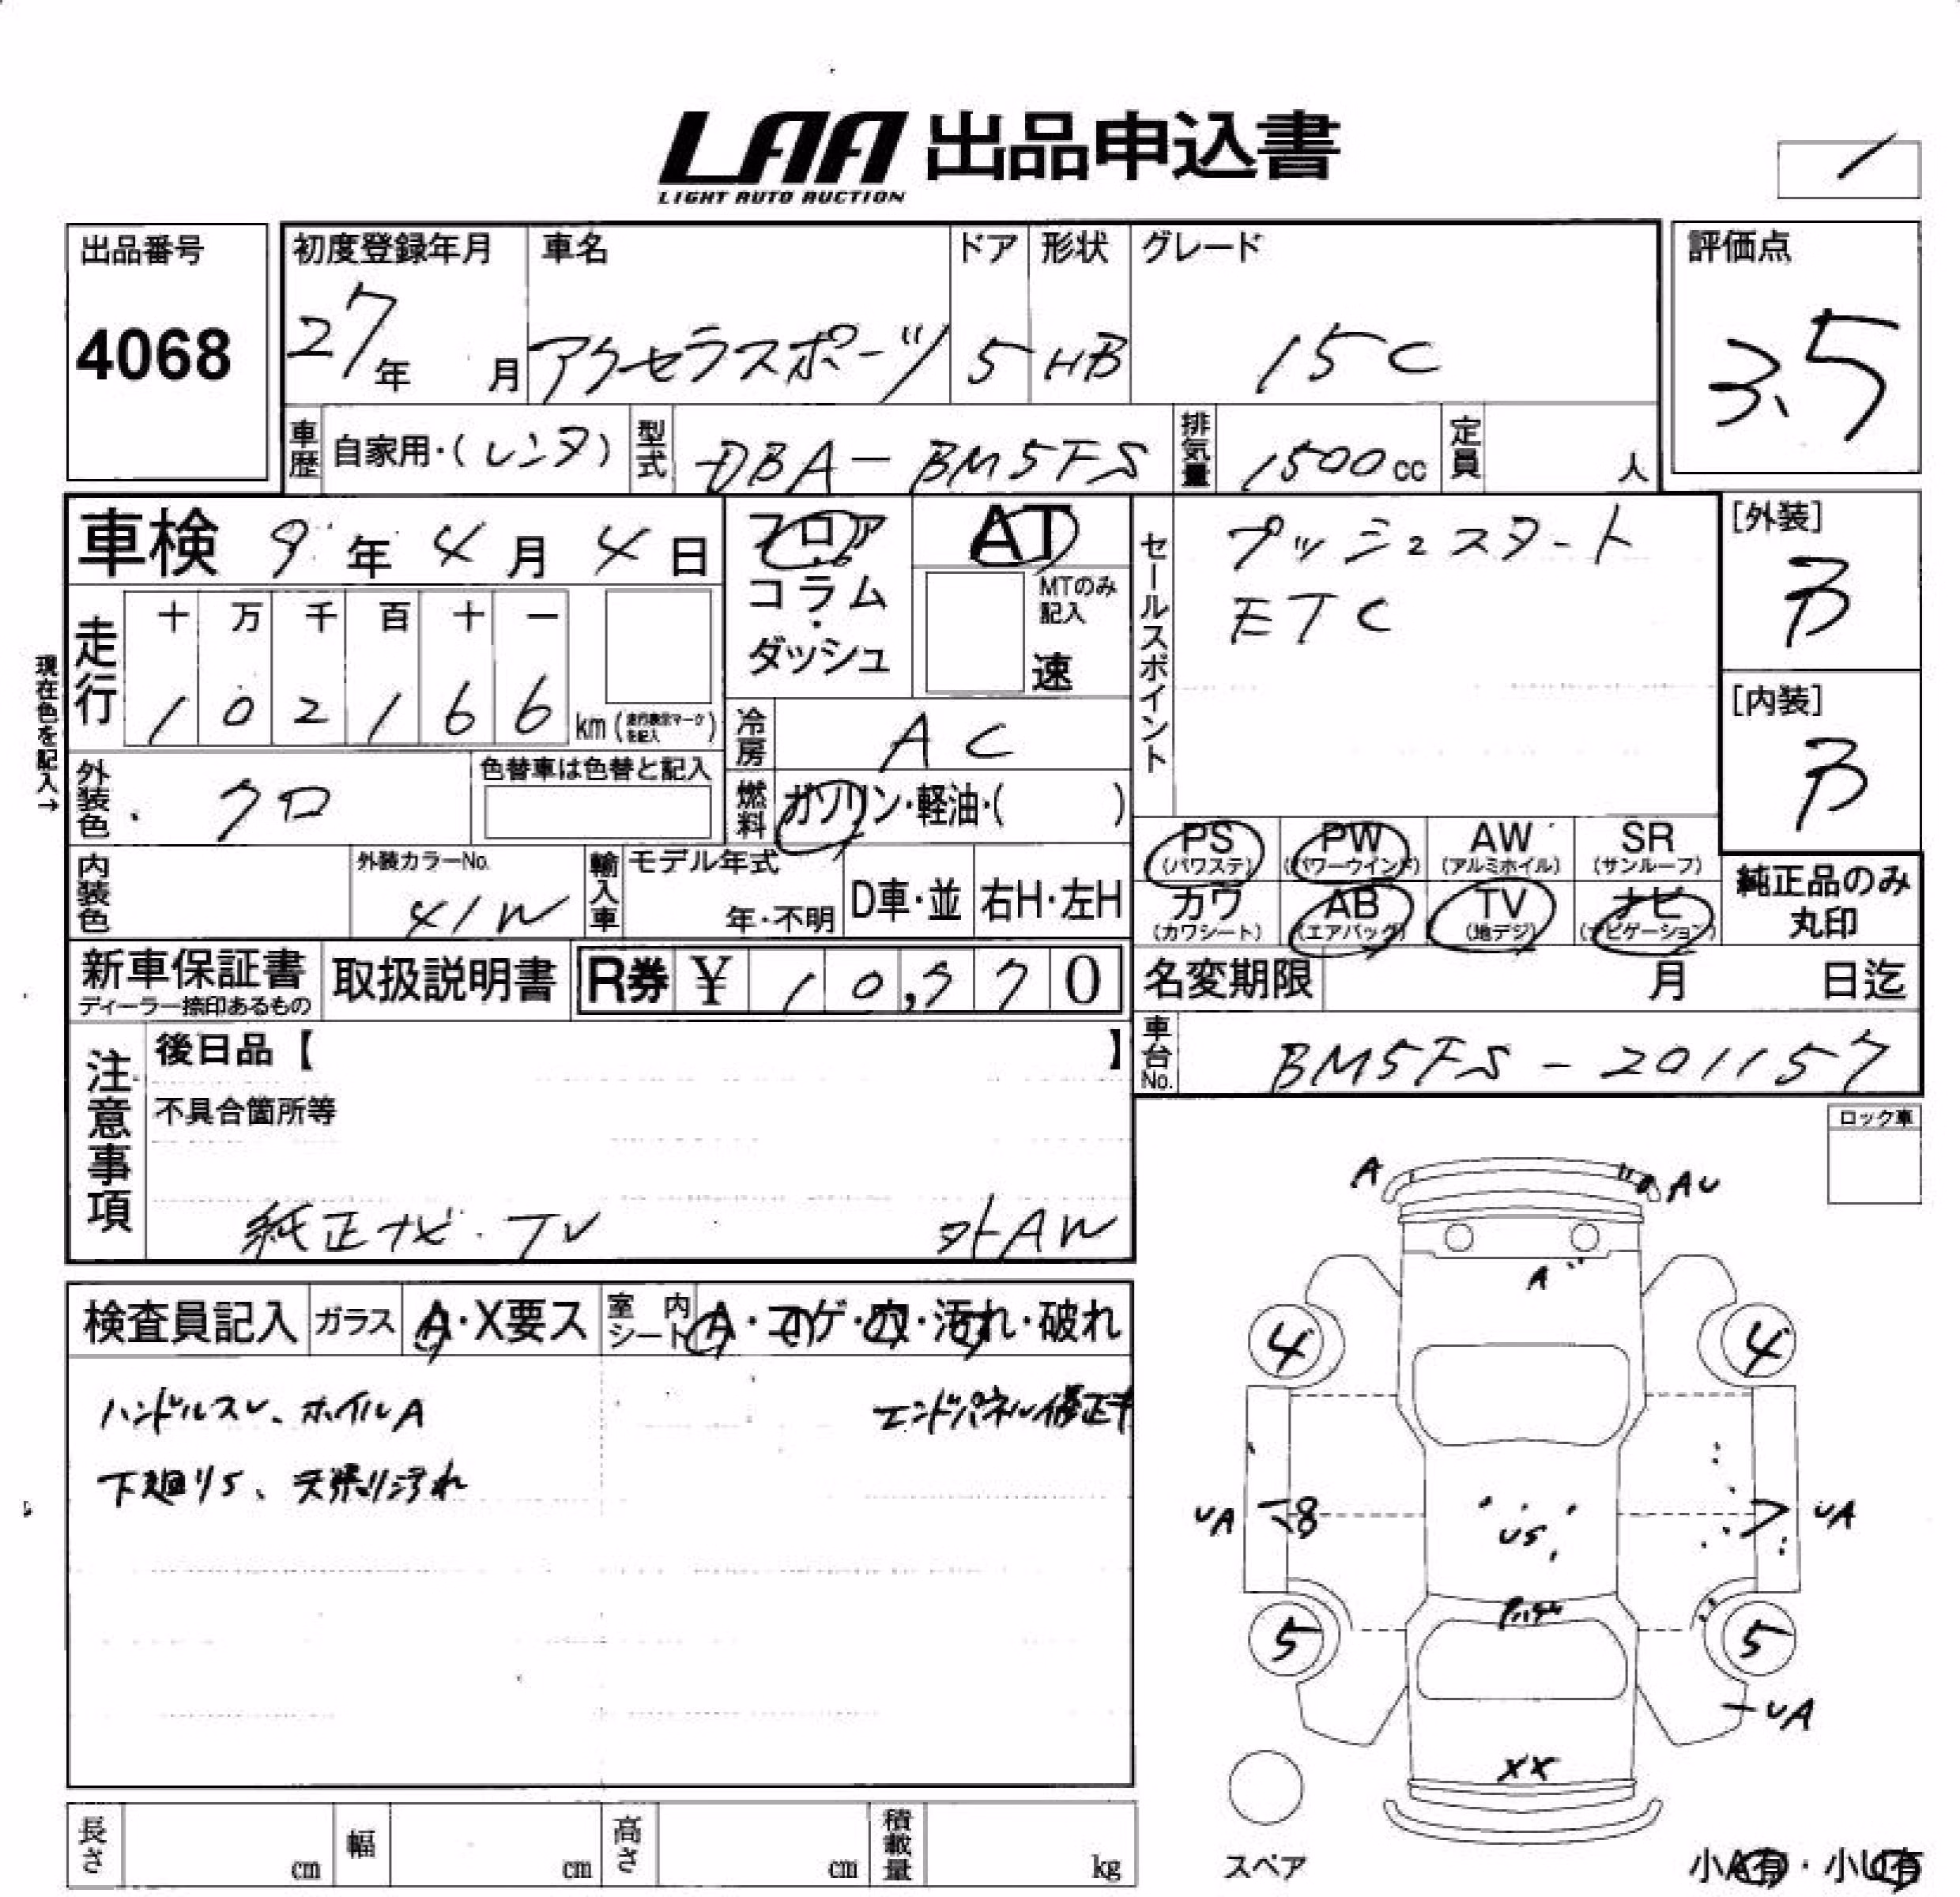 LAA 出品申込書
LIGHT AUTO AUCTION
出品番号
4068
初度登録年月
27年 月
車名
アクセラスポーツ
ドア
5
形状
HB
グレード
15C
評価点
3.5
車歴 自家用・(レンタ)
型式 DBA-BM5FS
排気量 1500cc
定員 人
車検 9年4月4日
フロア
コラム
・
ダッシュ
AT
MTのみ
記入
速
セールスポイント
プッシュスタート
ETC
[外装]
B
[内装]
B
現在色を記入→
走行
十 万 千 百 十 一
1 0 2 1 6 6 km (走行表示マークを記入)
冷房 AC
外装色 クロ
色替車は色替と記入
燃料 ガソリン・軽油・( )
PS PW AW SR
(パワステ) (パワーウインド) (アルミホイル) (サンルーフ)
カワ AB TV ナビ
(カワシート) (エアバッグ) (地デジ) (ナビゲーション)
純正品のみ
丸印
内装色
外装カラーNo.
41W
輸入車
モデル年式
年・不明
D車・並
右H・左H
新車保証書
ディーラー捺印あるもの
取扱説明書
R券 ¥ 10,770
名変期限 月 日迄
車台No. BM5FS-201157
注意事項
後日品【 】
不具合箇所等
純正ナビ・TV 外AW
ロック車
検査員記入 ガラス A・X要ス 室内シート A・コゲ・穴・汚れ・破れ
ハンドルスレ、ホイルA エンドパネル修正キ
下廻りS、天張り汚れ
A
AU
A
4
4
UA
8
US
UA
5
5
UA
XX
スペア
小A有・小U有
長さ cm 幅 cm 高さ cm 積載量 kg